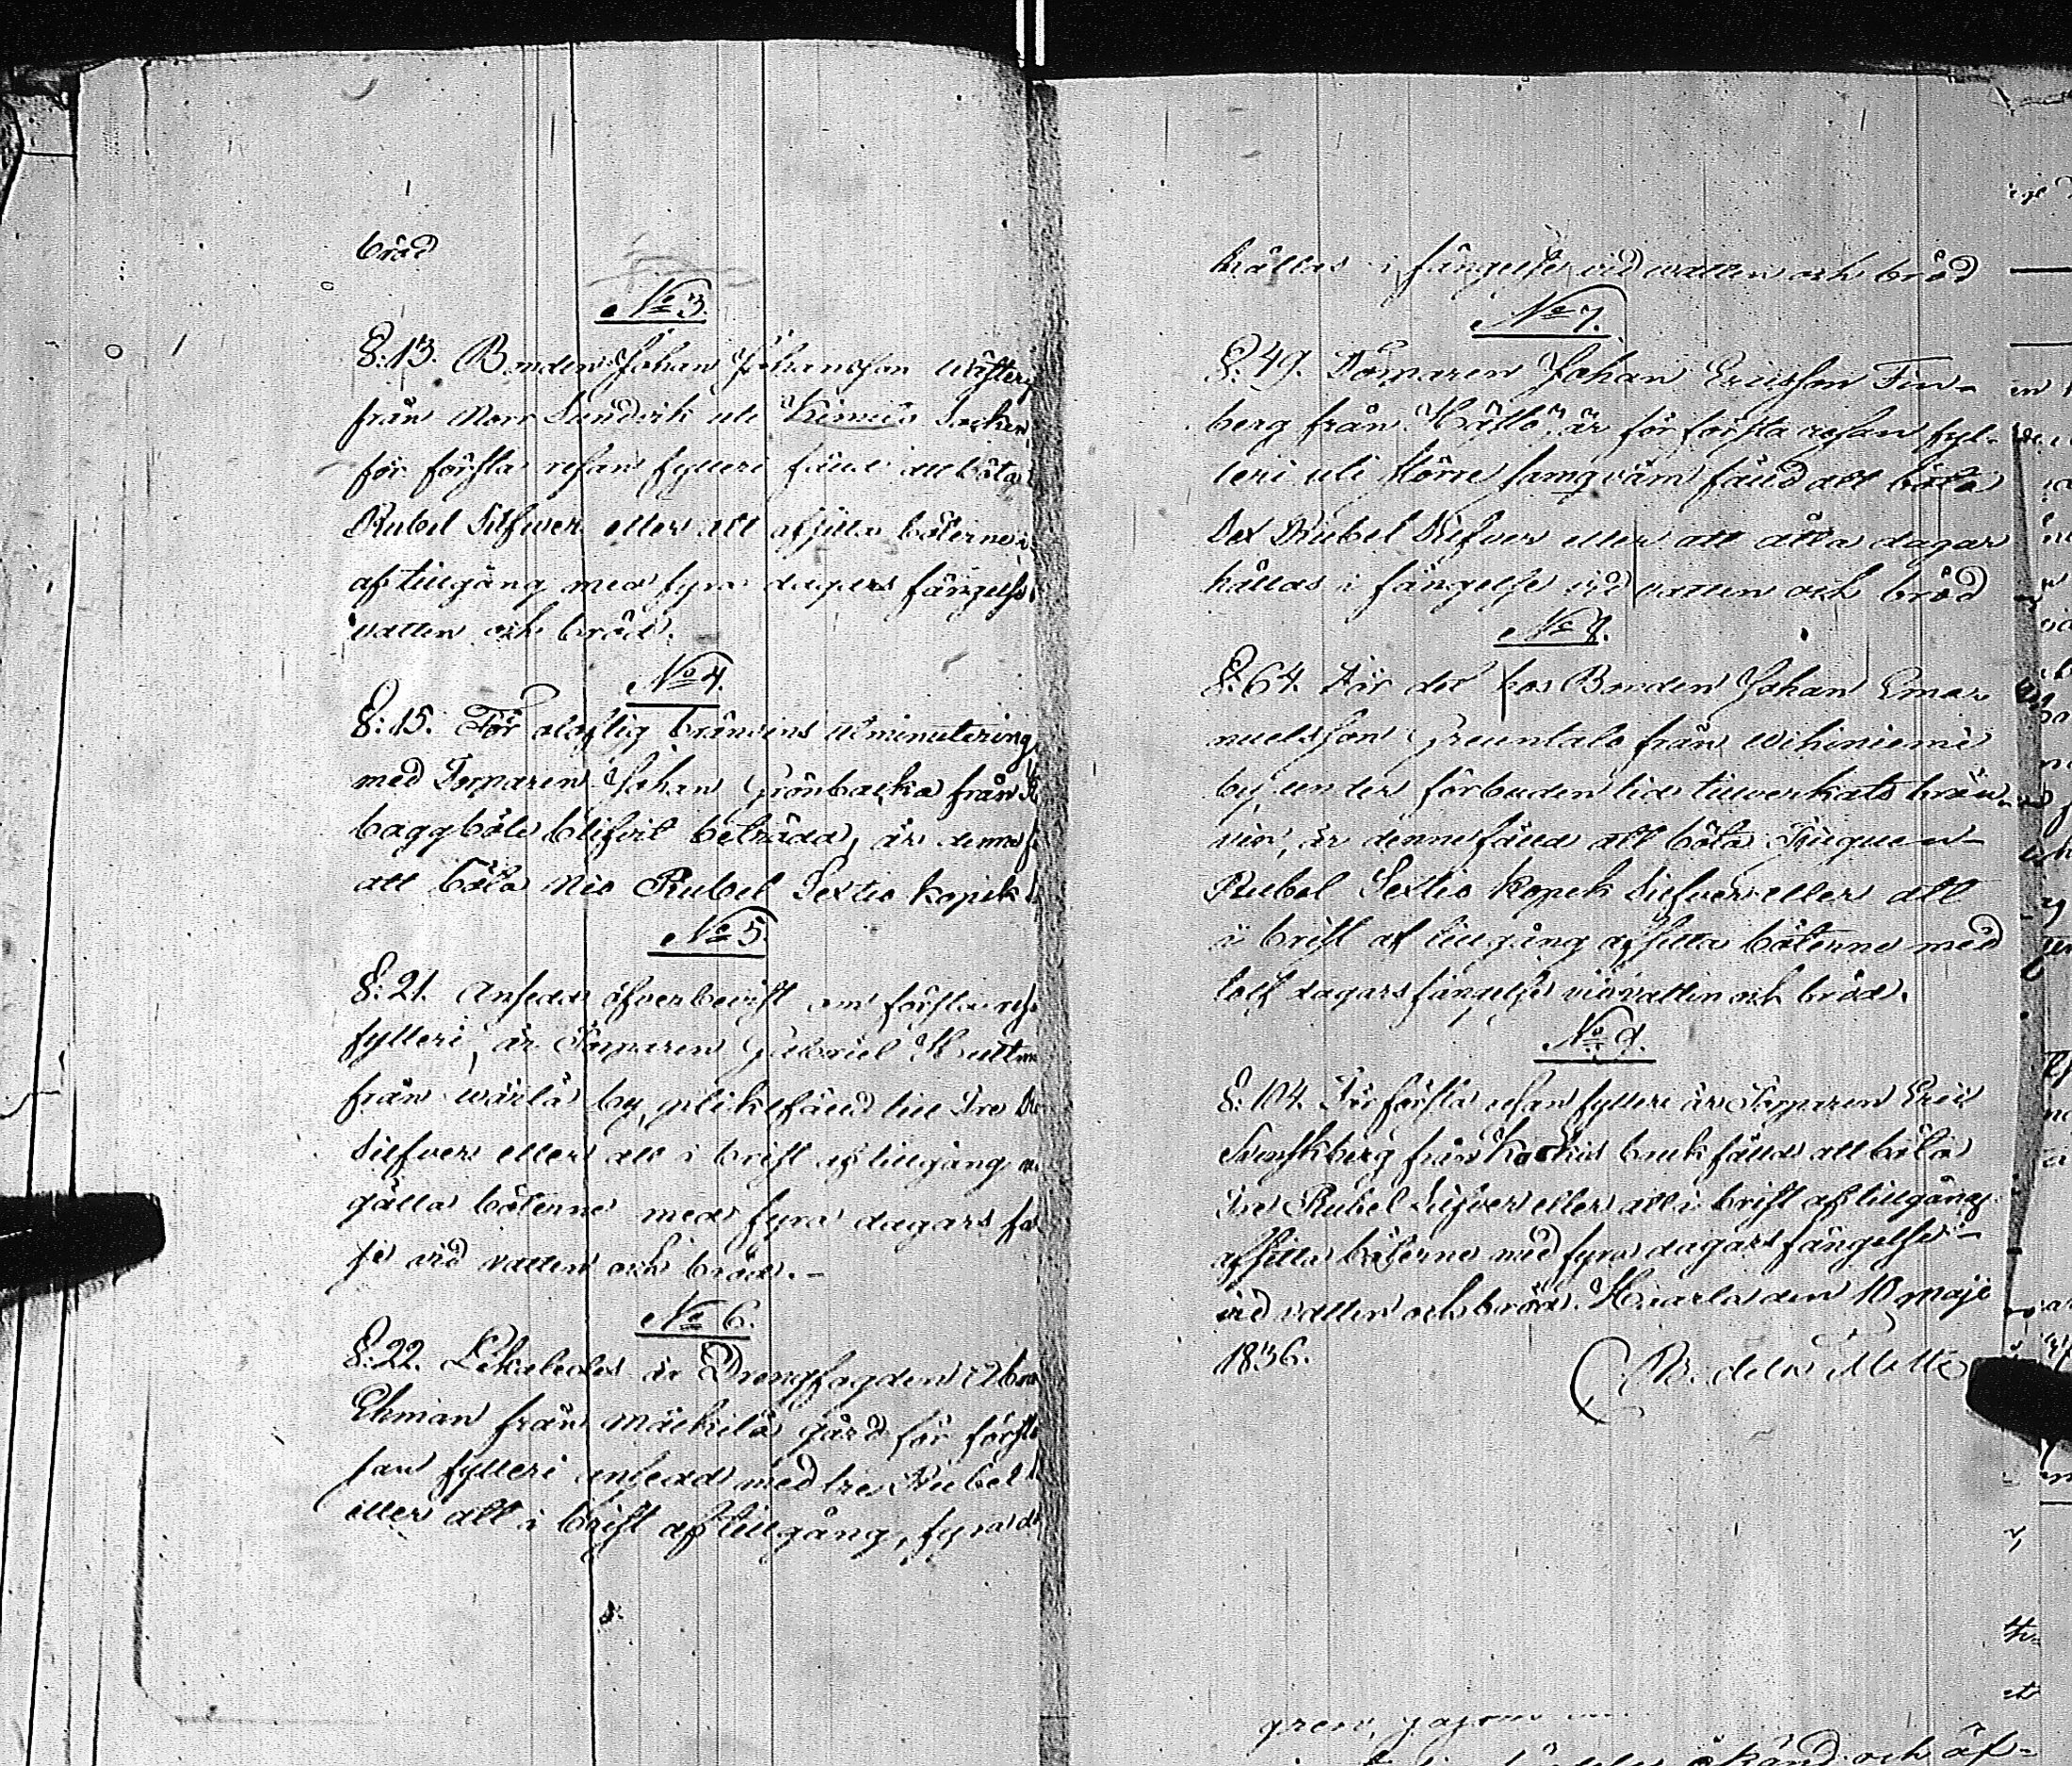 bröd
No 3.
§. 13. Bonden Johan Johansson
från Norr Sundvik uti Kimito Socken
för första resan fylleri fäld att böta
Rubel Silfver eller att afsitta böterne i
af tillgång med fyra dagars fängelse
vatten och bröd.
No 4.
§. 15. För olaflig bränvins utminutering
med Torparen Johan Grönbacka från
baggböle blifvit beträdd, är denne
att böta Nio Rubel Sextio kopek
No 5.
§. 21. Ansedd öfverbevist om första
fylleri, är Torparen Gabriel
från wärlä by, pliktfäld till Tre
Silfver eller att i brist af tillgång
gälla böterne med fyra dagars
se vid vatten och bröd.-
No 6.
§. 22. Likaledes är Drengfogden
Ekman från Mäckilä gård för första
san fylleri ansedd med tre Rubel
eller att i brist af tillgång, fyra
hållas i fängelse vid vatten och bröd
No 7.
§. 49. Torparen Johan Ericsson Fin-
berg från Hästö är för första resan fyl-
leri uti större samqväm fäld att böta
Sex Rubel Silfver eller att åtta dagar
hållas i fängelse vid vatten och bröd
No 8.
§. 64. För det hos Bonden Johan Ema-
nuelsson från Wihiniemi
by under förbuden tid tillverkats brän-
vin, är denne fäld att böta Tjuguen-
Rubel Sextio kopek Silfver eller att
i brist af tillgång afsitta böterne med
tolf dagars fängelse vid vatten och bröd.
No 9.
§. 104. För första resan fylleri är Torparen Eric
Svenskberg från Koskis bruk fäld att böta
Tre Rubel Silfver eller att i brist af tillgång
afsitta böterne med fyra dagars fängelse-
vid vatten och bröd. Kuarla den 10 Maji
1836.
C. W. de la Motte
och äf-